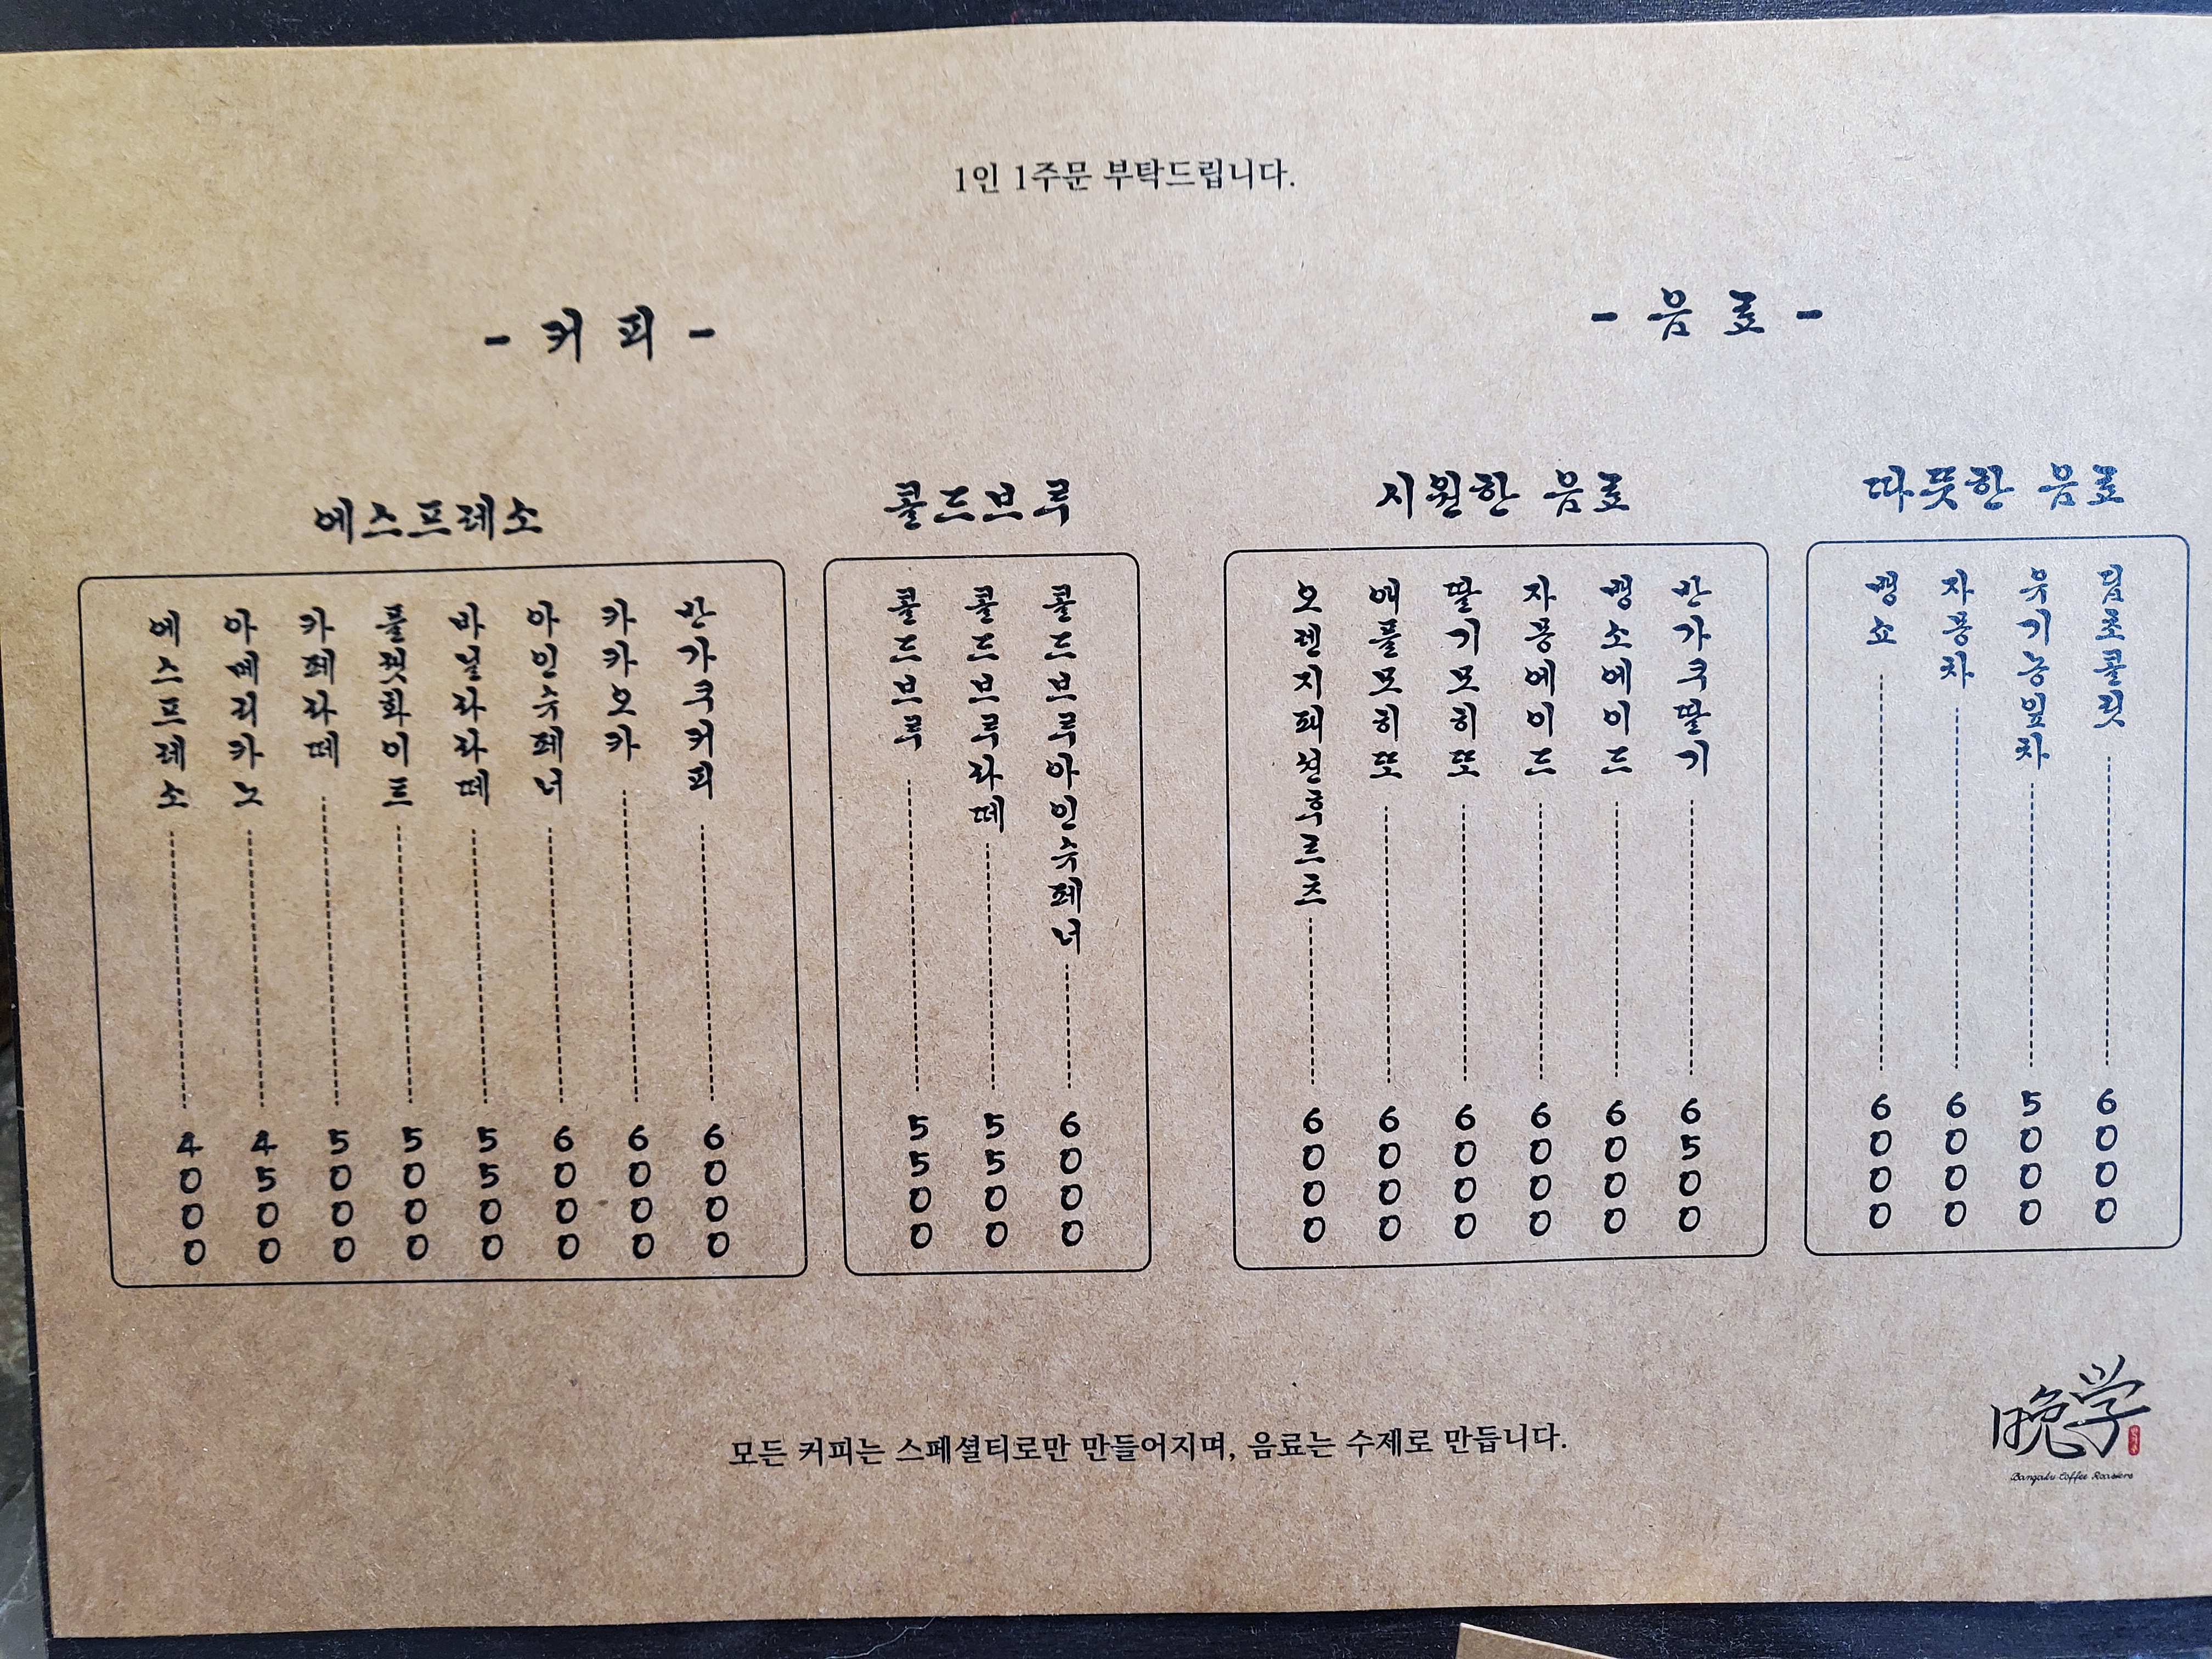 1인 1주문 부탁드립니다.
- 커 피 -
에스프레소
에스프레소 4000
아메리카노 4500
카페라떼 5000
플랫화이트 5000
바닐라라떼 5500
아인슈페너 6000
카카오카 6000
반가쿠커피 6000
콜드브루
콜드브루 5500
콜드브루라떼 5500
콜드브루아인슈페너 6000
- 음 료 -
시원한 음료
오렌지패션후르츠 6000
애플모히또 6000
딸기모히또 6000
자몽에이드 6000
뱅쇼에이드 6000
반가쿠딸기 6500
따뜻한 음료
뱅쇼 6000
자몽차 6000
유기농잎차 5000
딥초콜릿 6000
모든 커피는 스페셜티로만 만들어지며, 음료는 수제로 만듭니다.
晩学
Bangaku Coffee Roasters